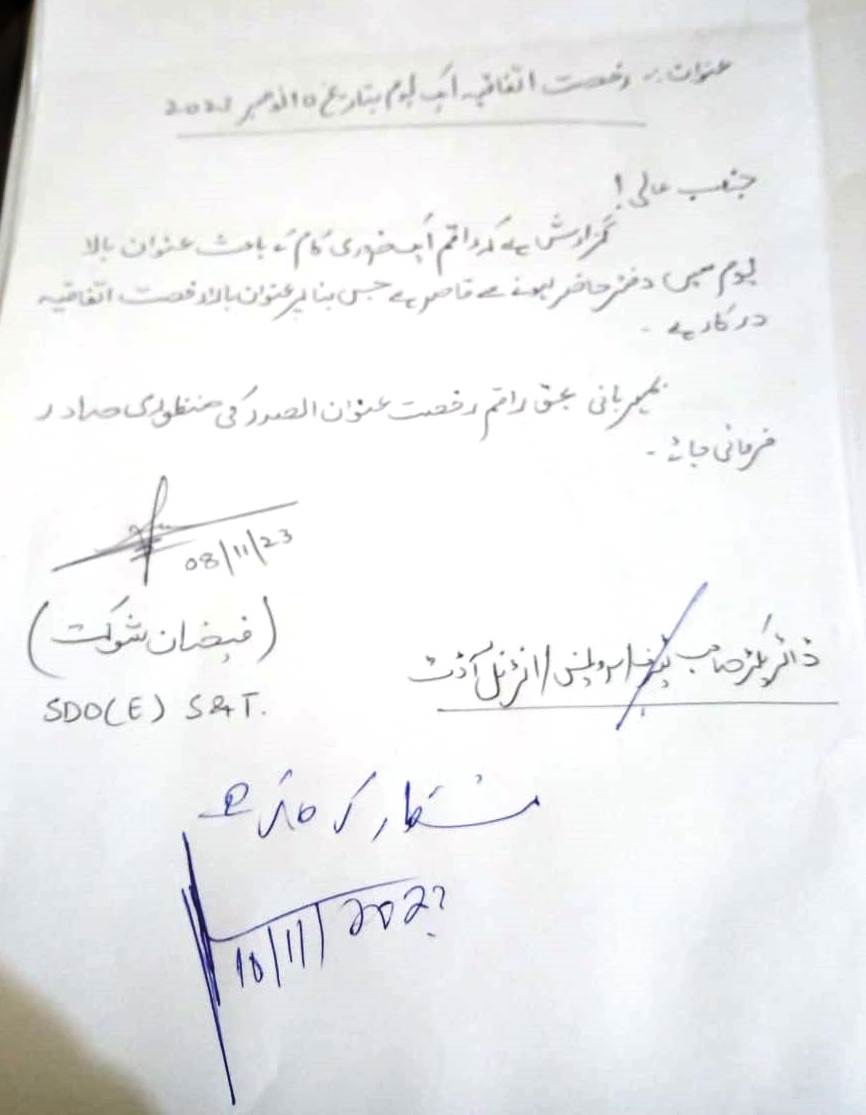 عنوان :۔ رخصت اتفاقیہ ایک یوم بتاریخ 10 نومبر 2023
جناب عالی!
گزارش ہے کہ راقم ایک ضروری کام کے باعث عنوان بالا
یوم میں دفتر حاضر ہونے سے قاصر ہے جس بنا پر عنوان بالا رخصت اتفاقیہ
درکار ہے ۔
بمہربانی بحق راقم رخصت عنوان الصدر کی منظوری صادر
فرمائی جائے ۔
08/11/23
(فیضان شوکت)
SDO(E) S&T.
ڈائریکٹر صاحب / سرویلنس / انٹرنل آڈٹ
10/11/2023